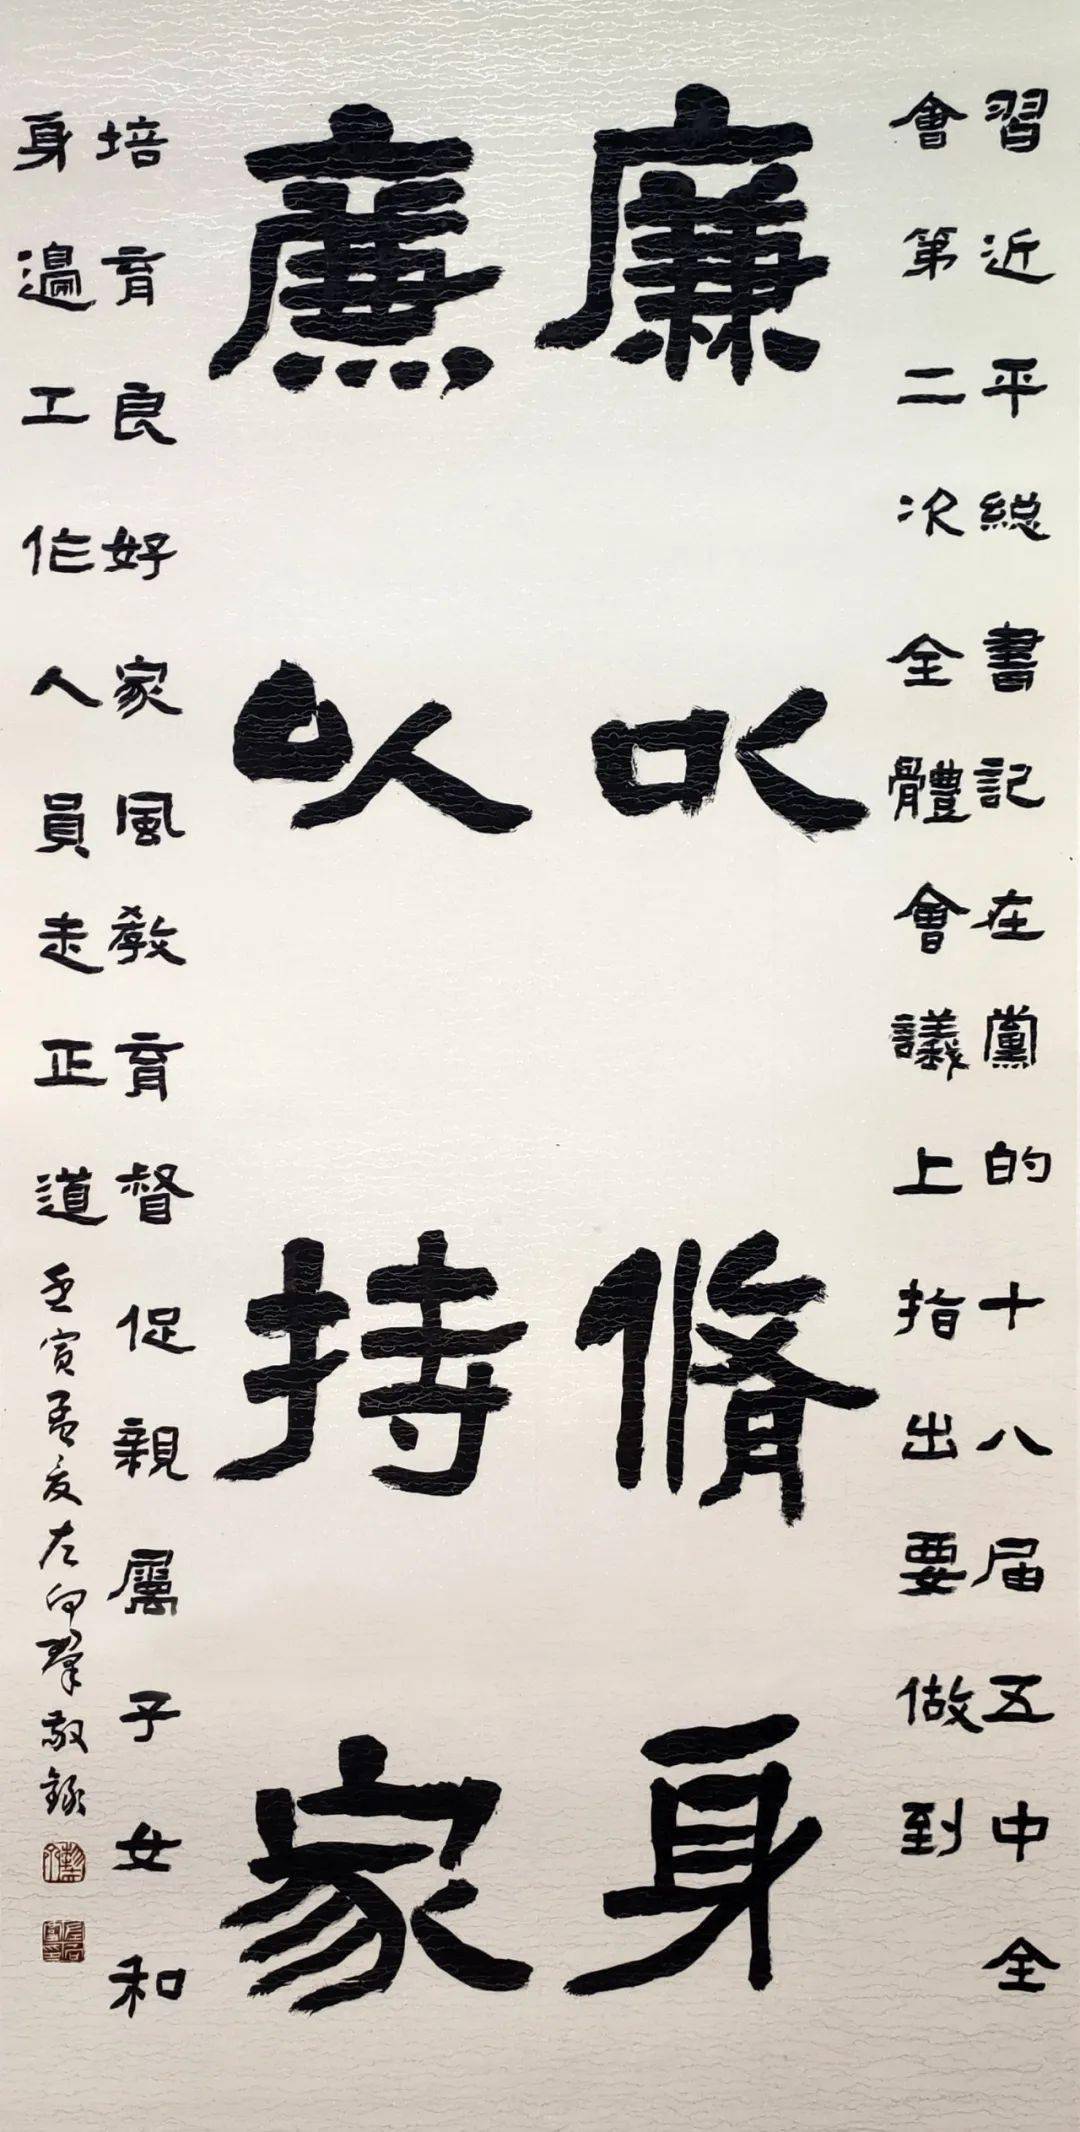 習近平總書記在黨的十八届五中全
會第二次全體會議上指出要做到
廉以脩身
廉以持家
培育良好家風教育督促親屬子女和
身邊工作人員走正道
壬寅孟夏左向群敬錄